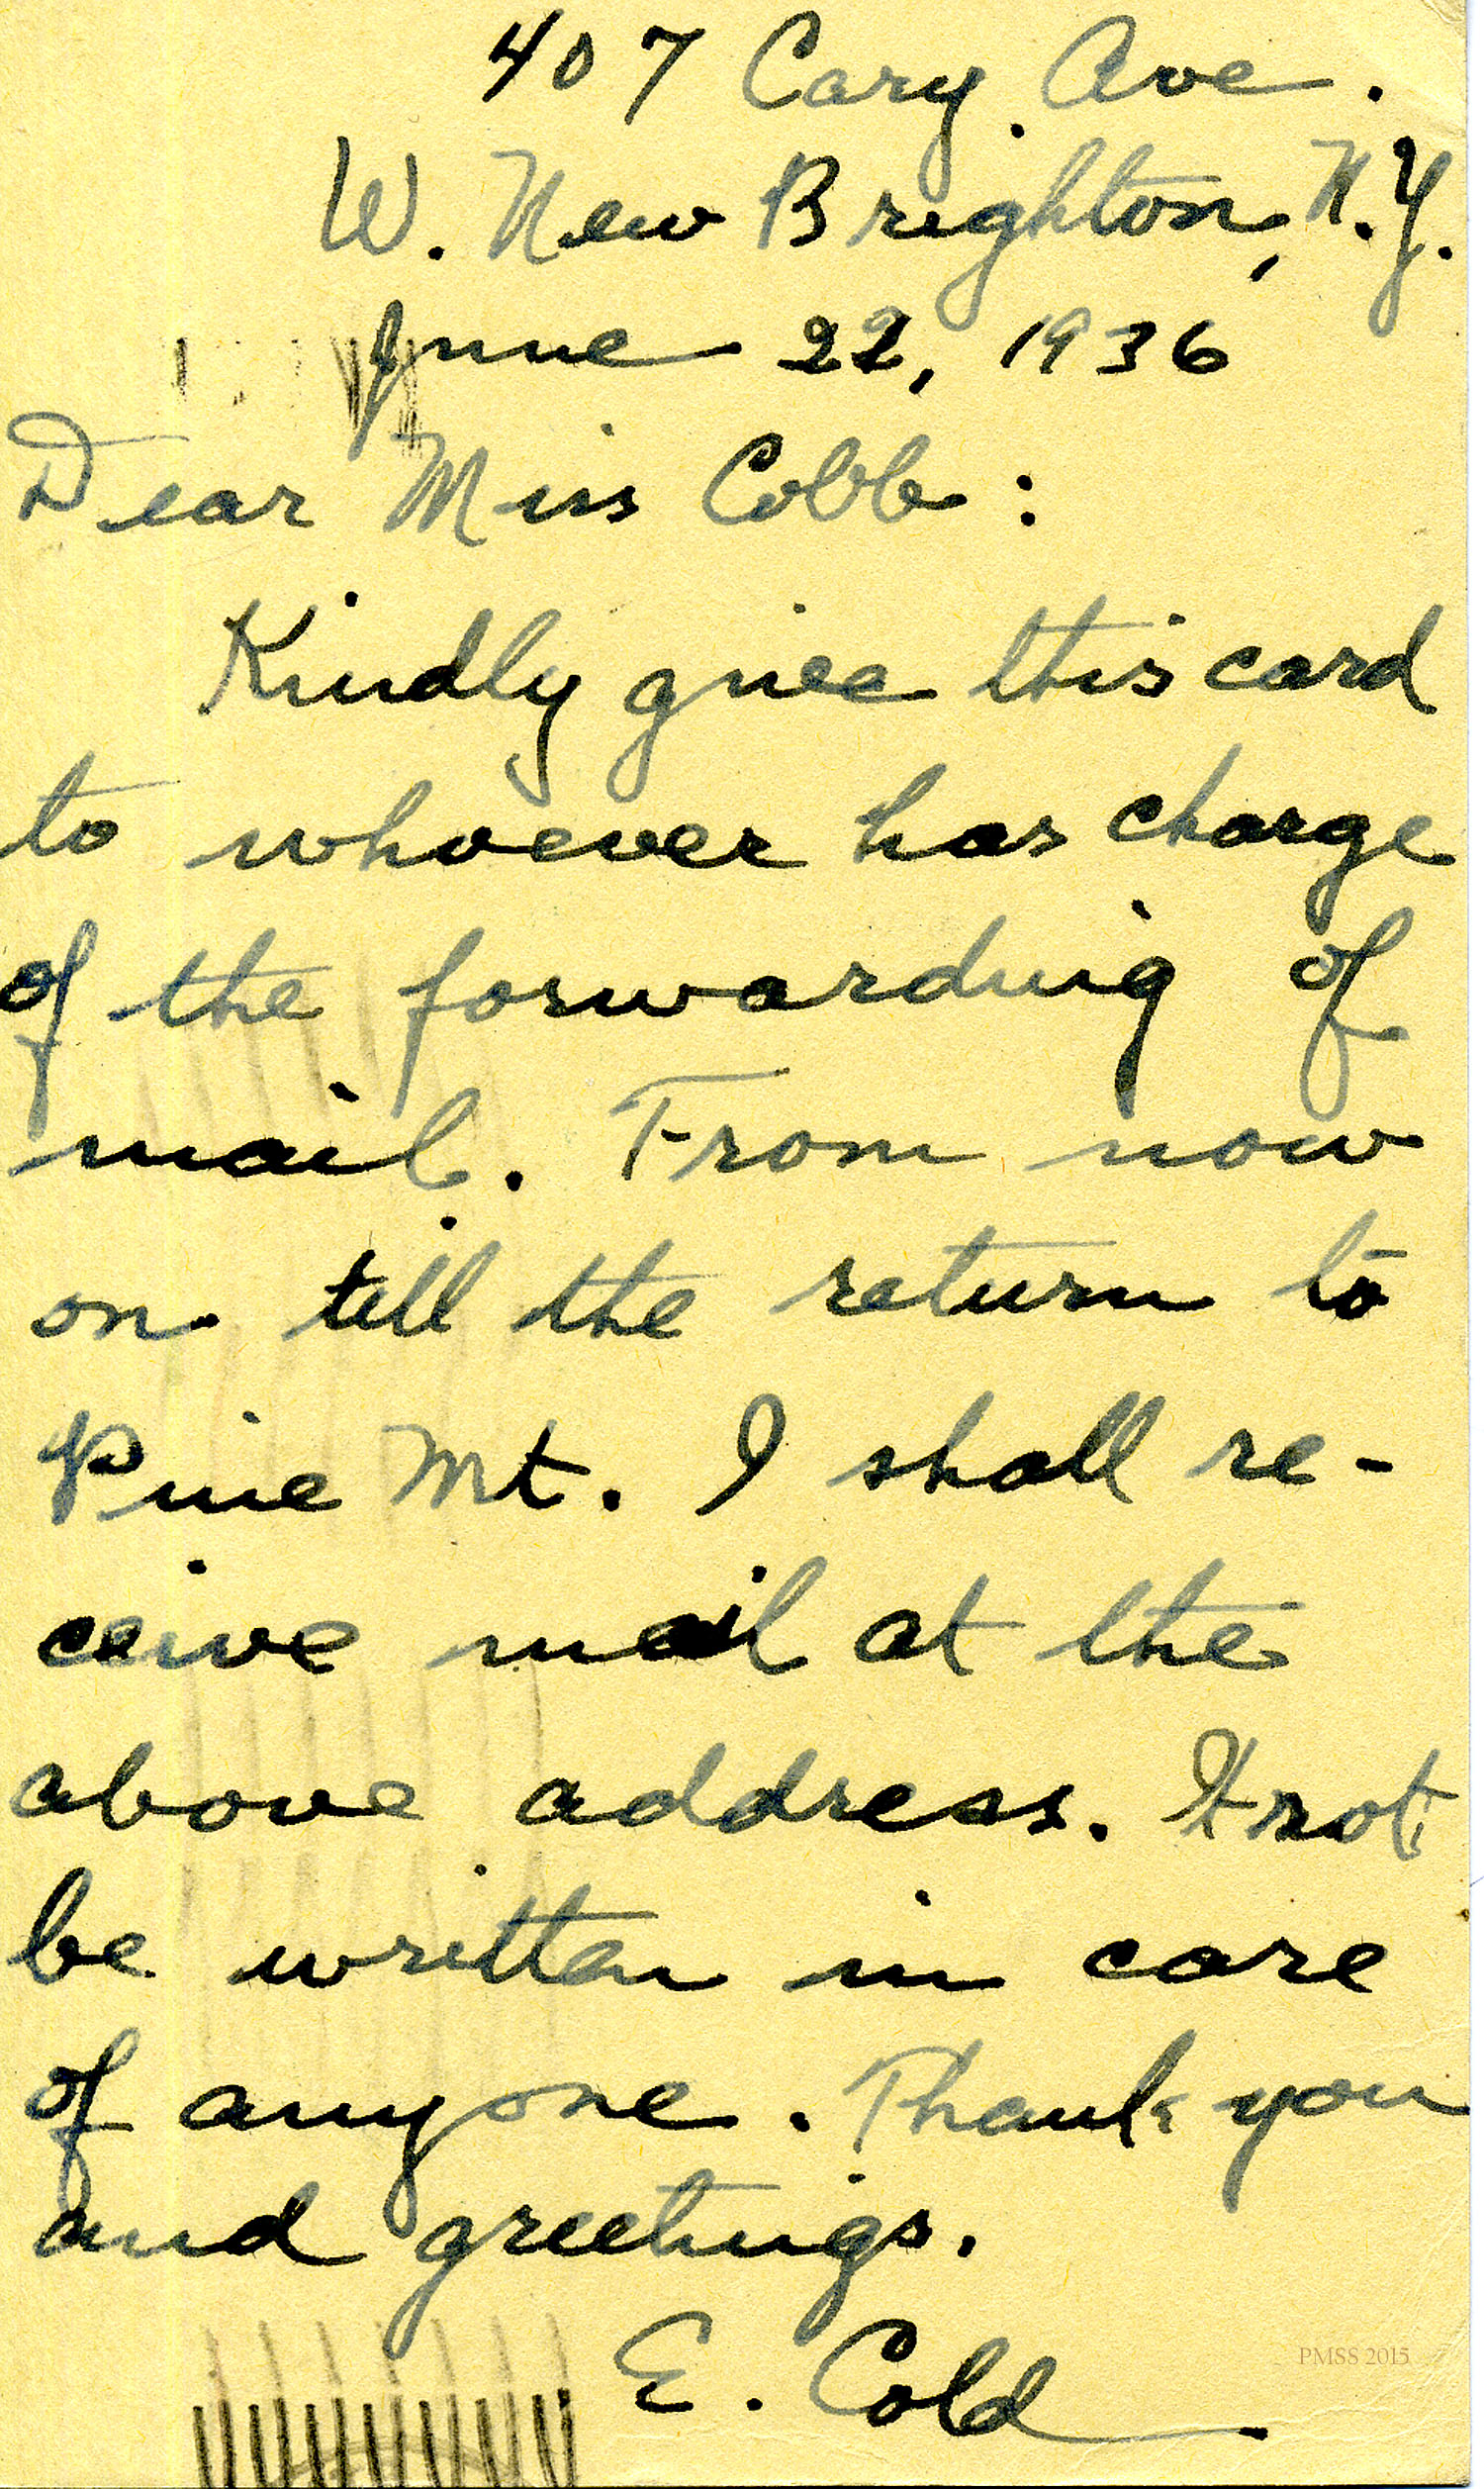 407 Cary Ave.
W. New Brighton, N.Y.
June 22, 1936
Dear Miss Cobb:
Kindly give this card
to whoever has charge
of the forwarding of
mail. From now
on till the return to
Pine Mt. I shall re-
ceive mail at the
above address. It not
be written in care
of anyone. Thank you
and greetings.
E. Cold
PMSS 2015